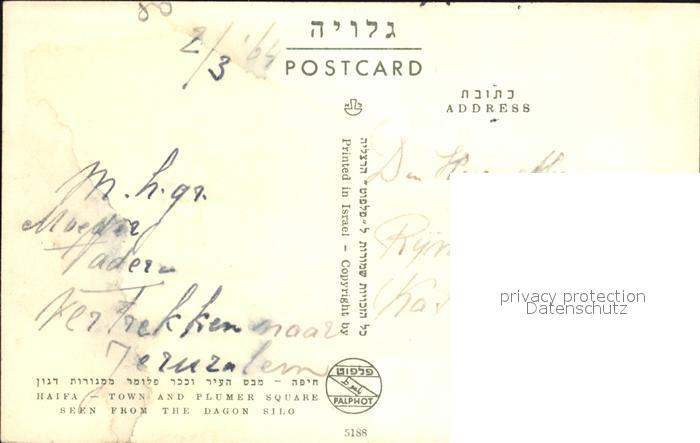 גלויה
2/3 '64
POSTCARD
כתובת
ADDRESS
M. h. gr.
Moeder
Vader
Vertrekken naar
Jeruzalem
חיפה – מבט העיר וככר פלומר ממגורות דגון
HAIFA – TOWN AND PLUMER SQUARE
SEEN FROM THE DAGON SILO
כל הזכויות שמורות ל„פלפוט” הרצליה
Printed in Israel – Copyright by
פלפוט
PALPHOT
5188
Den
privacy protection
Datenschutz